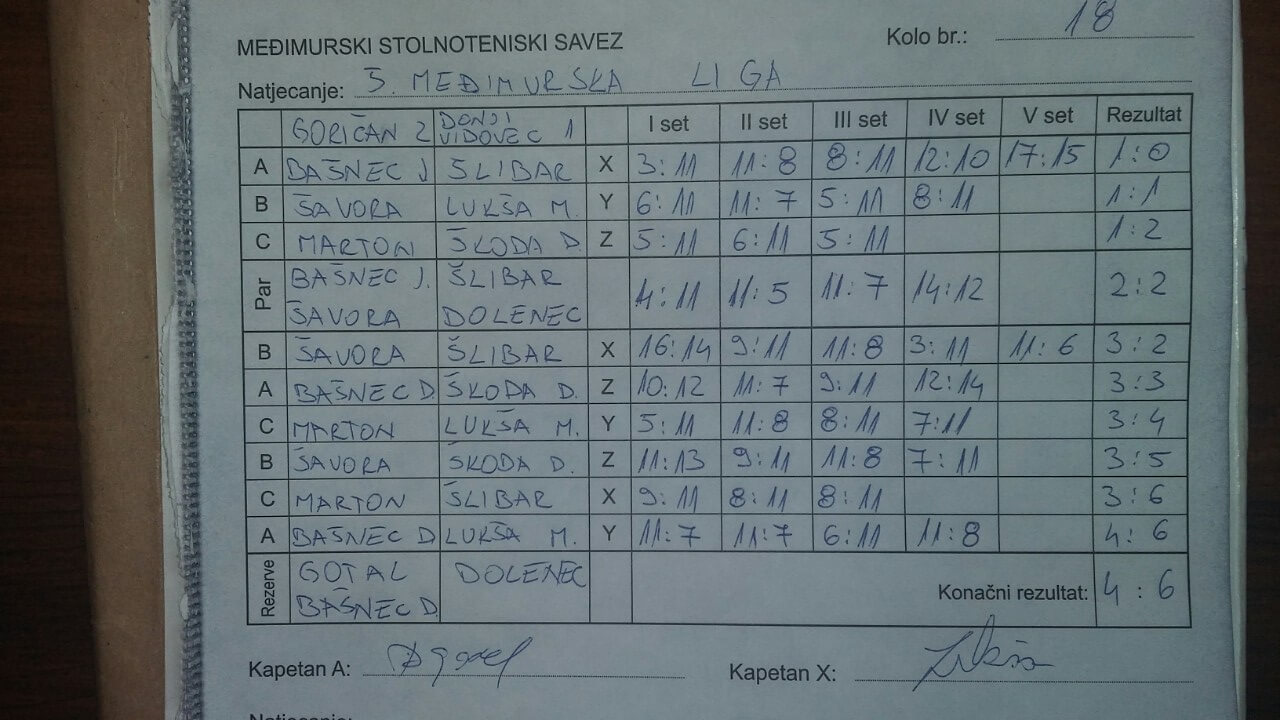 MEĐIMURSKI STOLNOTENISKI SAVEZ
Kolo br.: 18
Natjecanje: 3. MEĐIMURSKA LIGA
GORIČAN 2 DONJI VIDOVEC 1 I set II set III set IV set V set Rezultat
A BAŠNEC J ŠLIBAR X 3:11 11:8 8:11 12:10 17:15 1:0
B ŠAVORA LUKŠA M. Y 6:11 11:7 5:11 8:11 1:1
C MARTON ŠKODA D Z 5:11 6:11 5:11 1:2
Par BAŠNEC J. ŠLIBAR 4:11 11:5 11:7 14:12 2:2
ŠAVORA DOLENEC
B ŠAVORA ŠLIBAR X 16:14 9:11 11:8 3:11 11:6 3:2
A BAŠNEC D ŠKODA D. Z 10:12 11:7 9:11 12:14 3:3
C MARTON LUKŠA M. Y 5:11 11:8 8:11 7:11 3:4
B ŠAVORA ŠKODA D. Z 11:13 9:11 11:8 7:11 3:5
C MARTON ŠLIBAR X 9:11 8:11 8:11 3:6
A BAŠNEC D LUKŠA M. Y 11:7 11:7 6:11 11:8 4:6
Rezerve GOTAL DOLENEC
BAŠNEC D. Konačni rezultat: 4:6
Kapetan A:
Kapetan X:
Natjecanje: